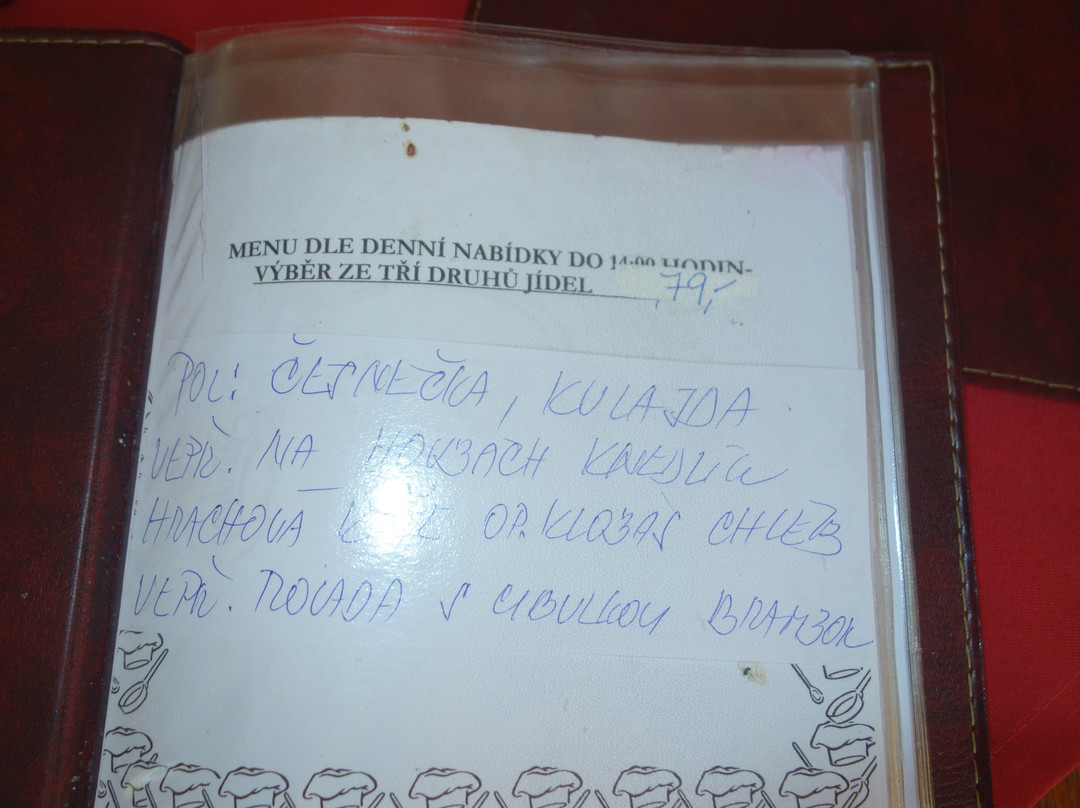 MENU DLE DENNÍ NABÍDKY DO 14:00 HODIN-
VÝBĚR ZE TŘÍ DRUHŮ JÍDEL 79,-
POL: ČESNEČKA, KULAJDA
VEPŘ. NA HOUBÁCH KNEDLÍK
HRACHOVÁ KAŠE OP. KLOBÁS CHLÉB
VEPŘ. ROLÁDA S CIBULKOU BRAMBOR